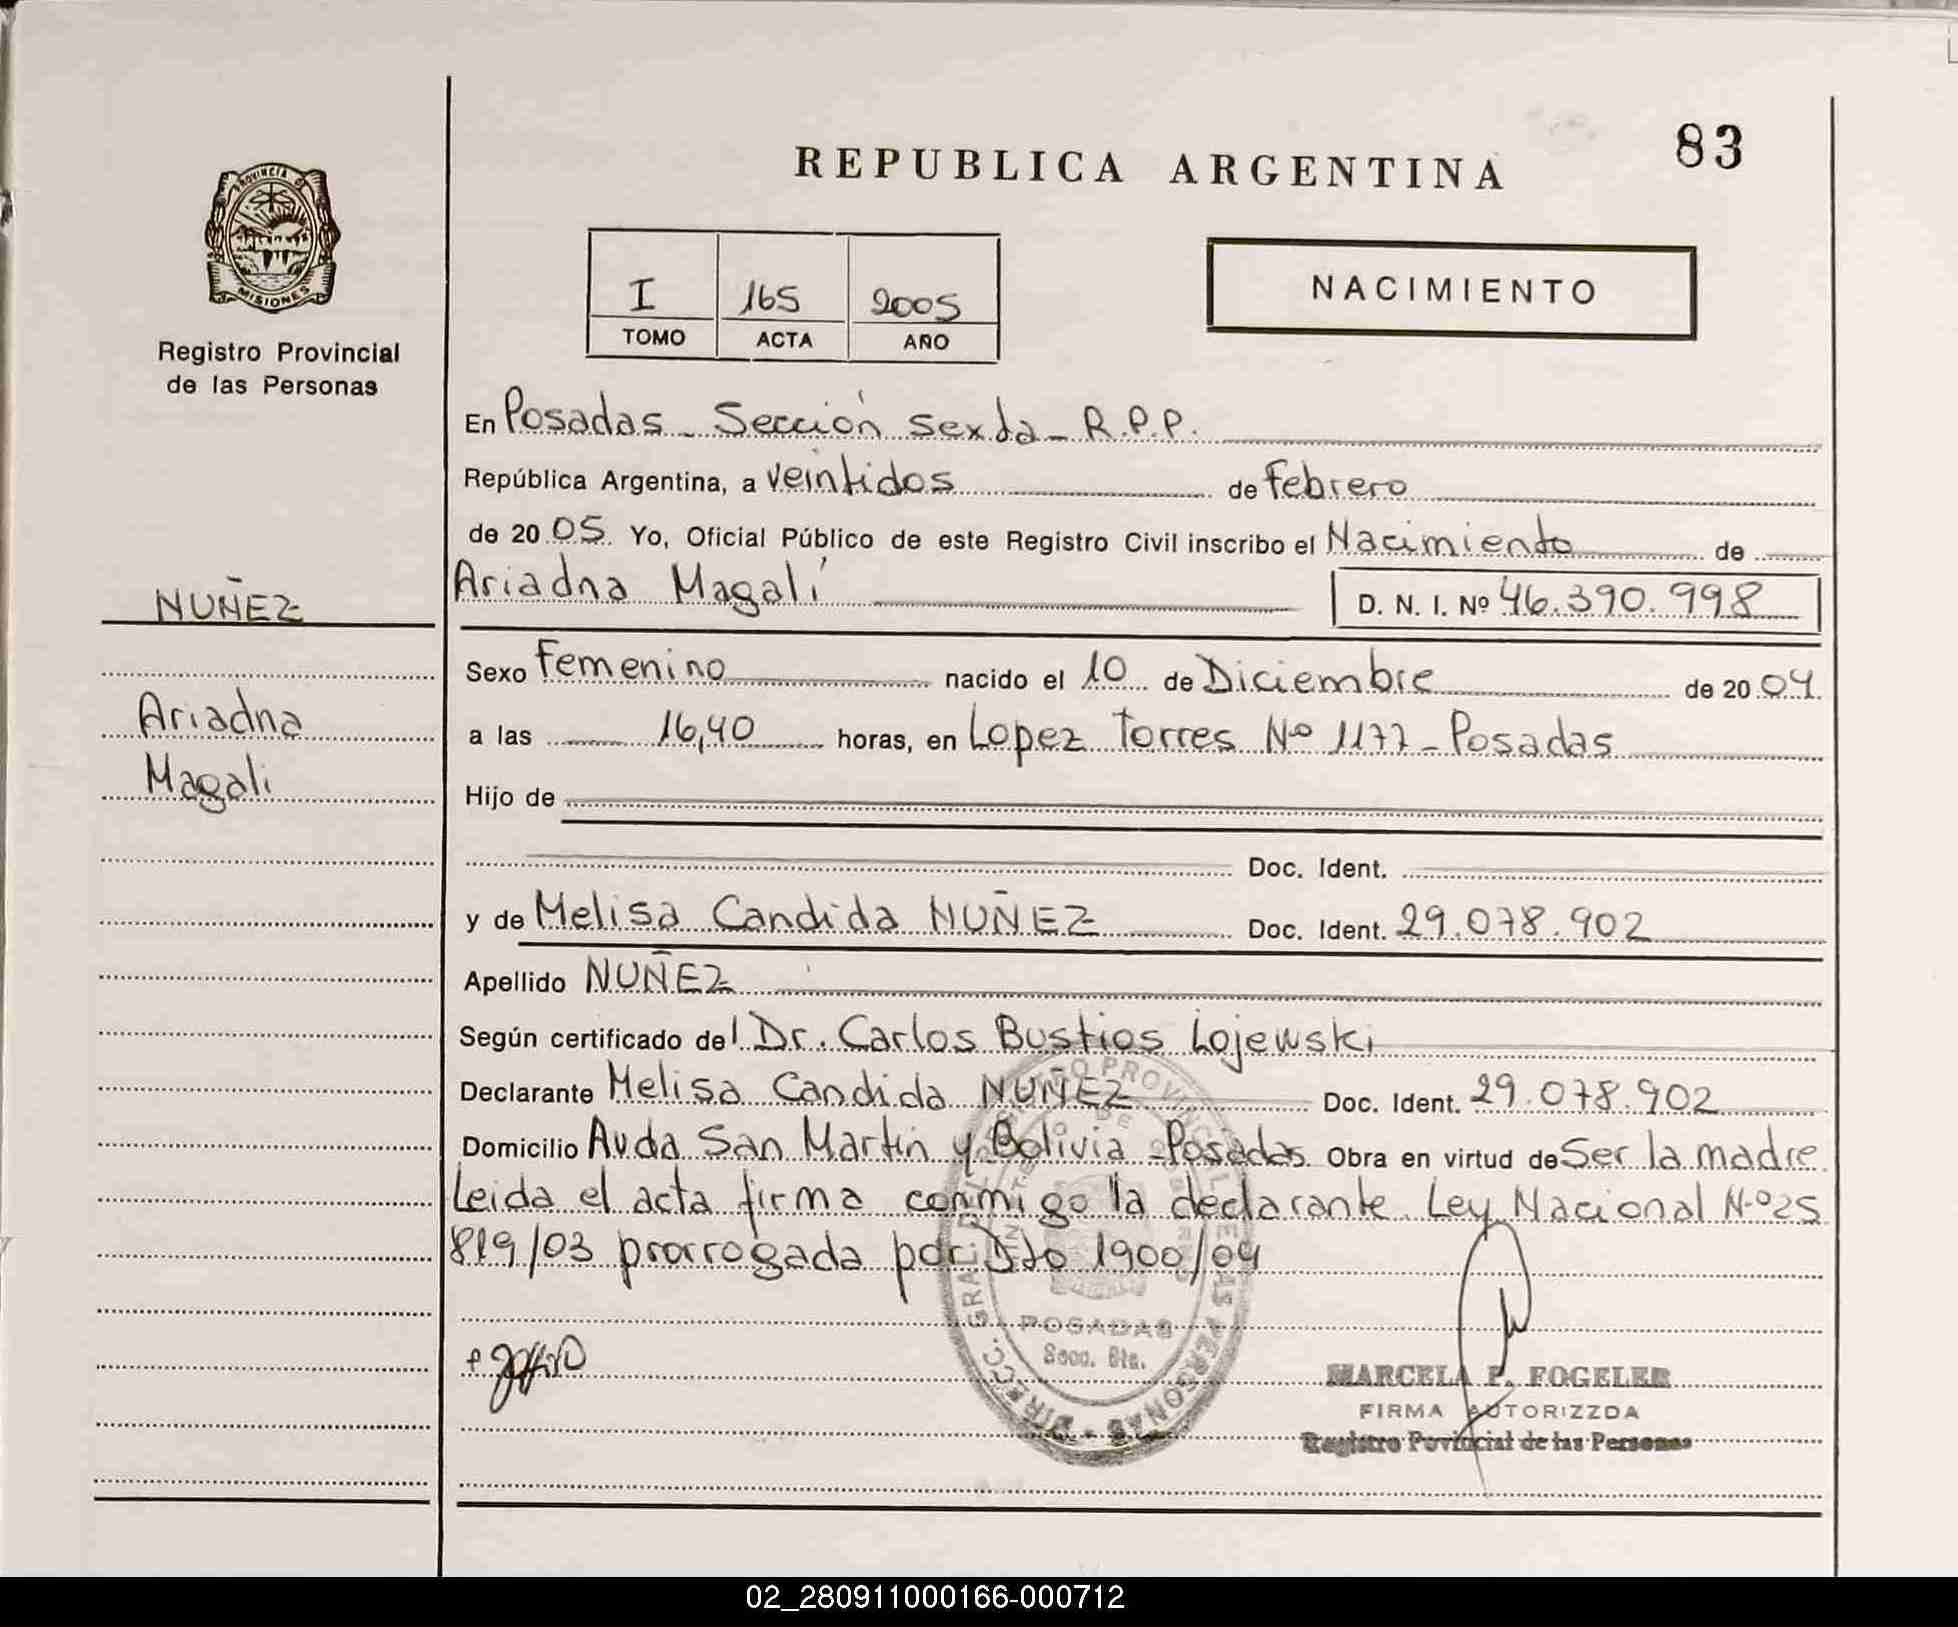 83
REPUBLICA ARGENTINA
PROVINCIA DE
MISIONES
Registro Provincial
de las Personas
I 165 2005
TOMO ACTA AÑO
NACIMIENTO
En Posadas - Sección sexta - R.P.P.
República Argentina, a veintidos de Febrero
de 2005 Yo, Oficial Público de este Registro Civil inscribo el Nacimiento de
Ariadna Magalí D. N. I. Nº 46.390.998
NUÑEZ
Ariadna
Magali
Sexo Femenino nacido el 10 de Diciembre de 2004
a las 16,40 horas, en Lopez Torres Nº 1177 - Posadas
Hijo de
Doc. Ident.
y de Melisa Candida NUÑEZ Doc. Ident. 29.078.902
Apellido NUÑEZ
Según certificado del Dr. Carlos Bustios Lojewski
Declarante Melisa Candida NUÑEZ Doc. Ident. 29.078.902
Domicilio Avda San Martín y Bolivia - Posadas Obra en virtud de Ser la madre
Leida el acta firma conmigo la declarante. Ley Nacional Nº 25
819/03 prorrogada por Dto 1900/04
POSADAS
Secc. 6ta.
MARCELA P. FOGELER
FIRMA AUTORIZZDA
Registro Povincial de las Personas
02_280911000166-000712